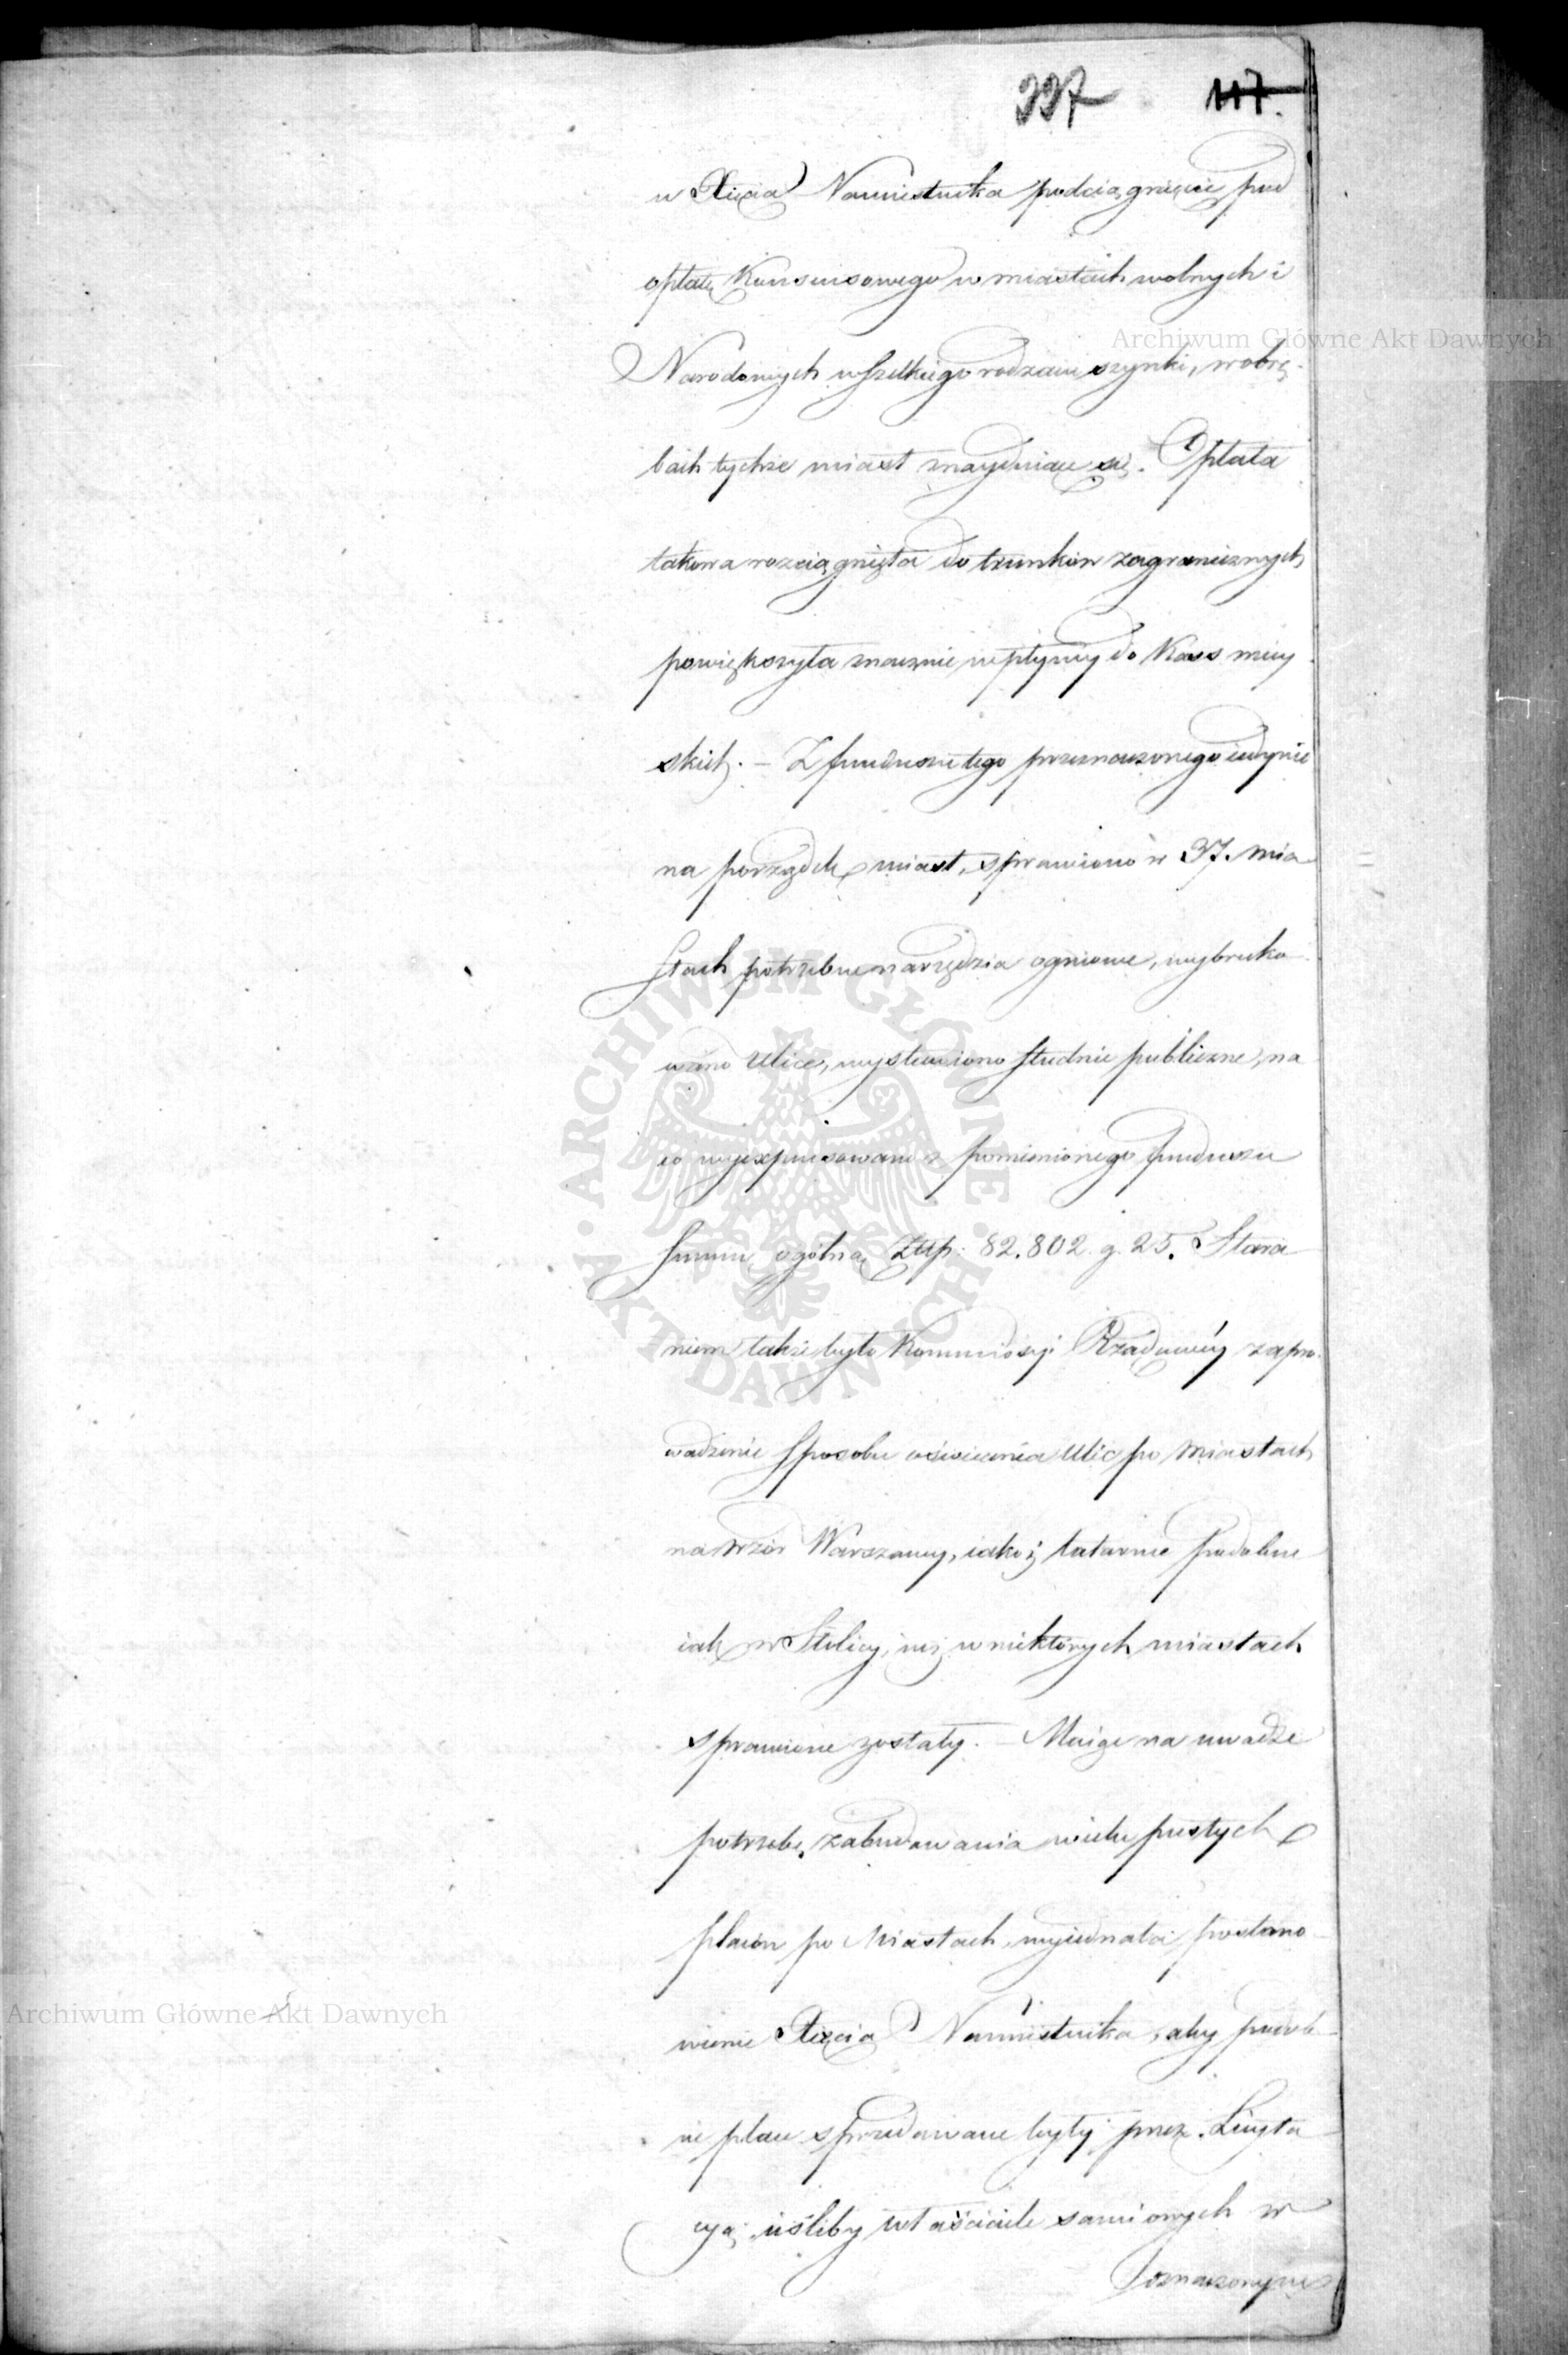 337 117.
w Xięcia Namiestnika podciągnięcie pod
opłatę Konsensowego w miastach wolnych i
Narodowych wszelkiego rodzaiu szynki, w obrę-
bach tychże miast znayduiące się. Opłata
takowa rozciągnięta do trunków zagranicznych
powiększyła znacznie wpływy do Kass miey
skich. – Z funduszu tego przeznaczonego iedynie
na porządek miast, sprawiono w 37. mia
stach potrzebne narzędzia ogniowe, wybruko-
wano Ulice, wystawiono studnie publiczne, na
co wyexpensowano z pomienionego funduszu
summę ogólną Złłp: 82.802 g. 25. Stara
niem także było Kommissyi Rządowéy zapro-
wadzenie sposobu oświecenia Ulic po Miastach
na wzór Warszawy, iakoż latarnie podobne
iak w Stolicy, iuż w niektórych miastach
sprawione zostały. – Maiąc na uwadze
potrzebę zabudowania wielu pustych
placów po Miastach, wyiednała postano-
wienie Xięcia Namiestnika, aby podob-
ne place sprzedawane były przez Licyta
cyą, ieśliby właściciele samiowych w
oznaczonym
Archiwum Główne Akt Dawnych
Archiwum Główne Akt Dawnych
· ARCHIWUM GŁÓWNE · AKT DAWNYCH